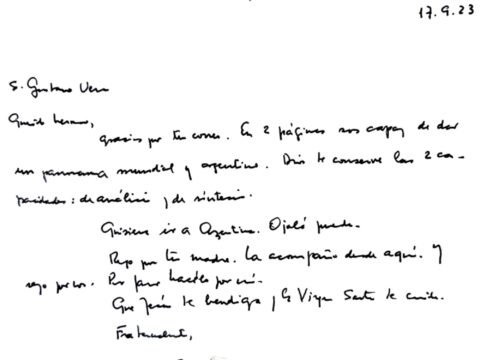 17.9.23
S. Gustavo Vera
Querido hermano,
gracias por tu correo. En 2 páginas sos capaz de dar
un panorama mundial y argentino. Dios te conserve las 2 ca-
pacidades: de análisis y de síntesis.
Quisiera ir a Argentina. Ojalá pueda.
Rezo por tu madre. La acompaño desde aquí. Y
rezo por vos. Por favor hacelo por mí.
Que Jesús te bendiga y la Virgen Santa te cuide.
Fraternalmente,